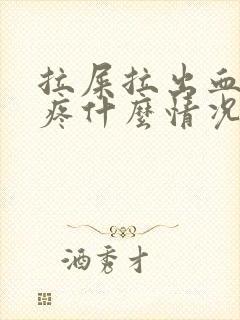 拉屎拉出血
疼什麼情況
酒秀才